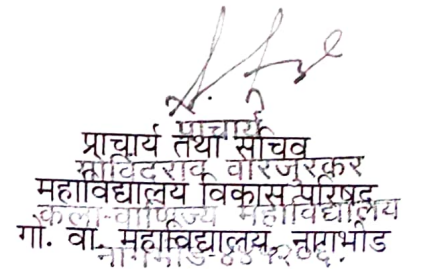 प्राचार्य
प्राचार्य तथा सचिव
गोविंदराव वारजुरकर
महाविद्यालय विकास परिषद
कला-वाणिज्य महाविद्यालय
गो. वा. महाविद्यालय, नागभीड
नागभीड-४४१२०५.